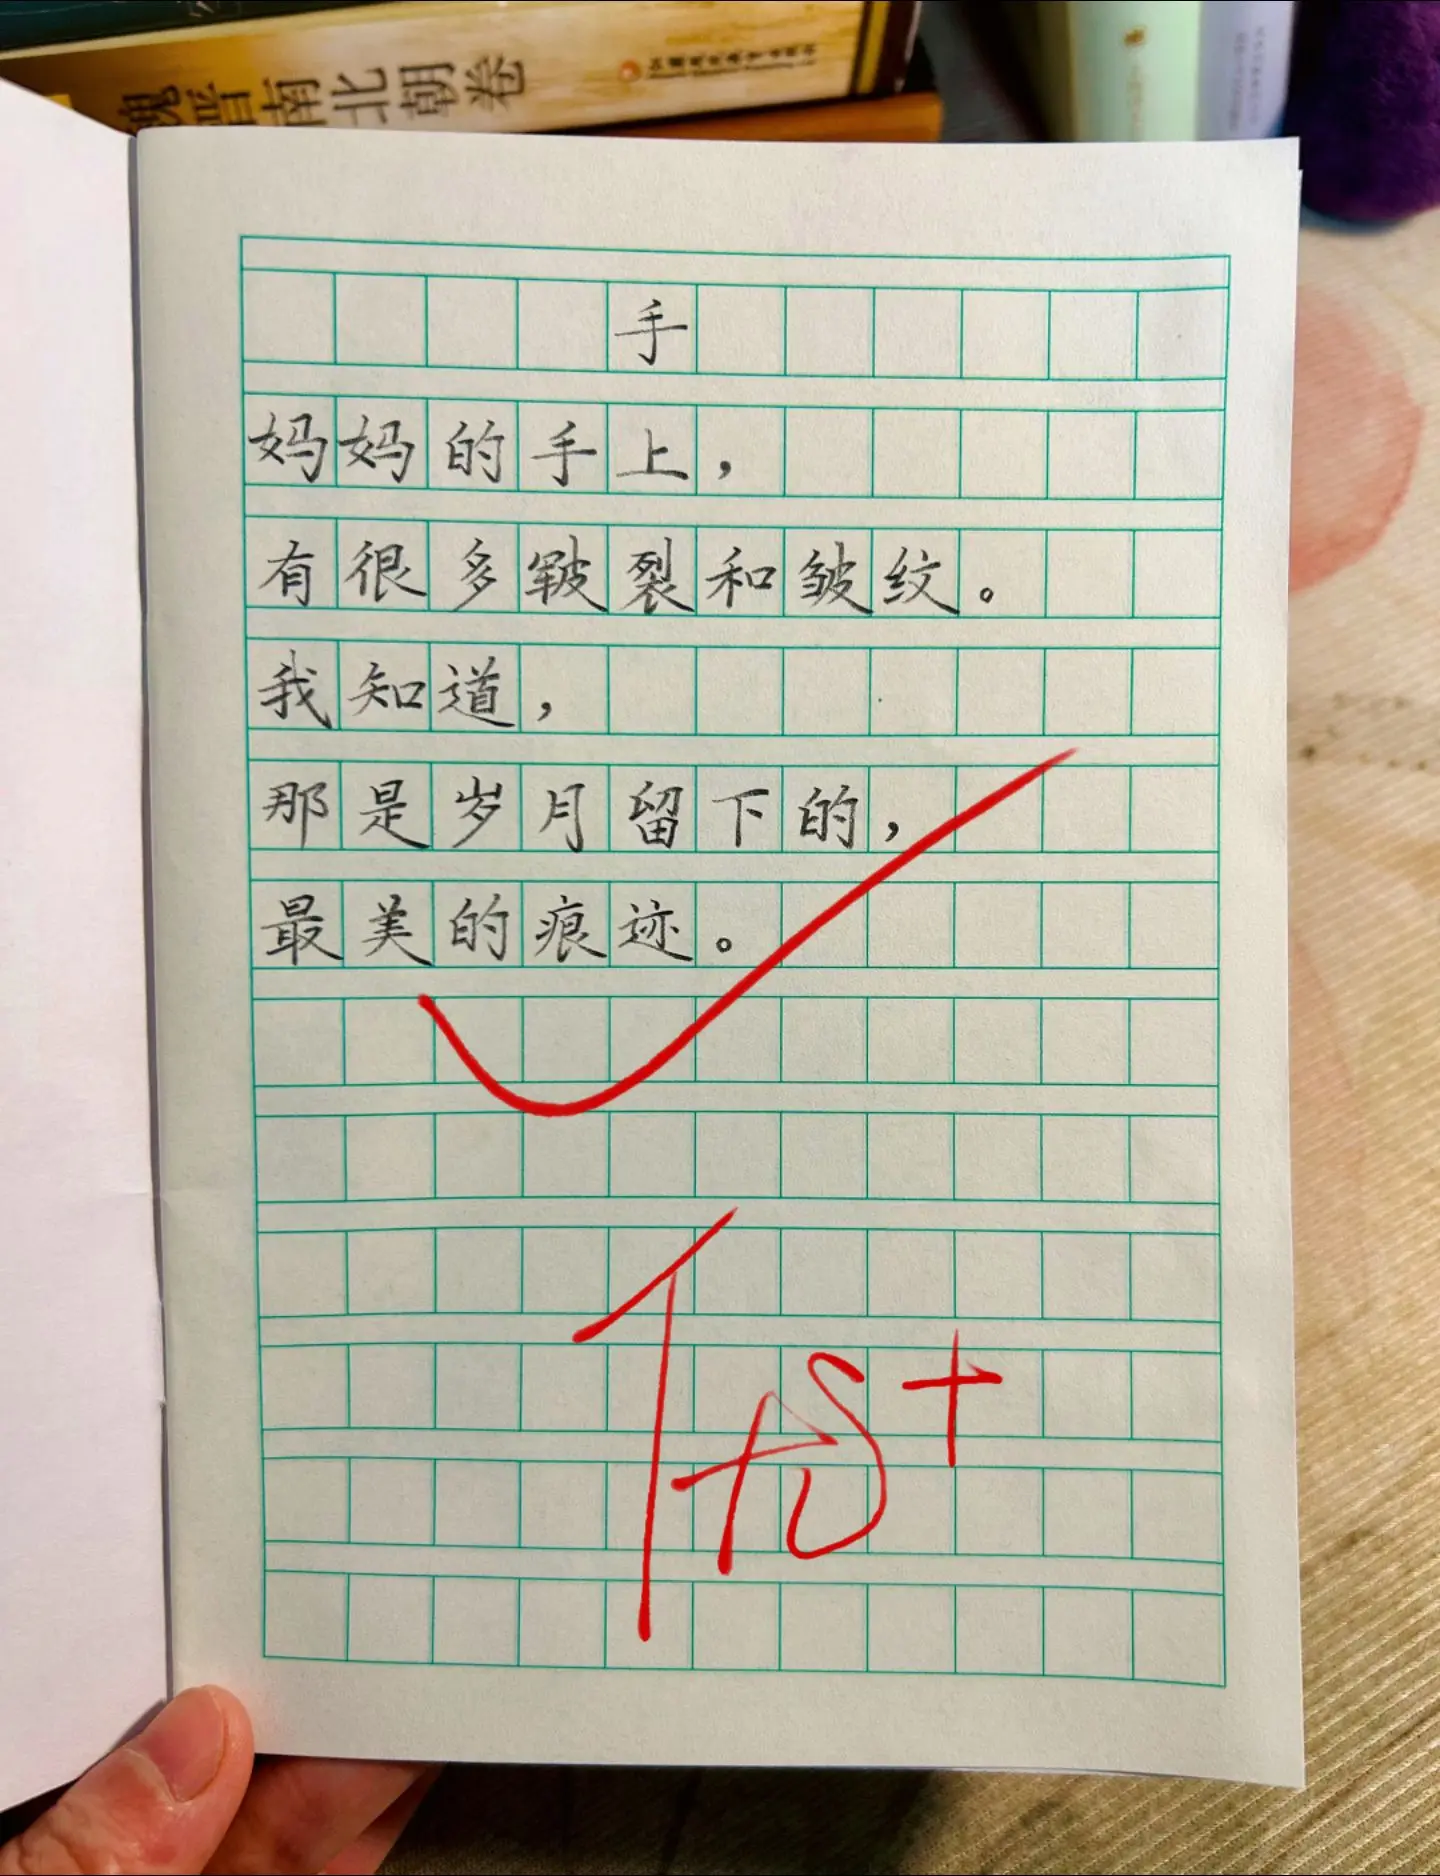 魏晋南北朝卷
手
妈妈的手上，
有很多皲裂和皱纹。
我知道，
那是岁月留下的，
最美的痕迹。
优+